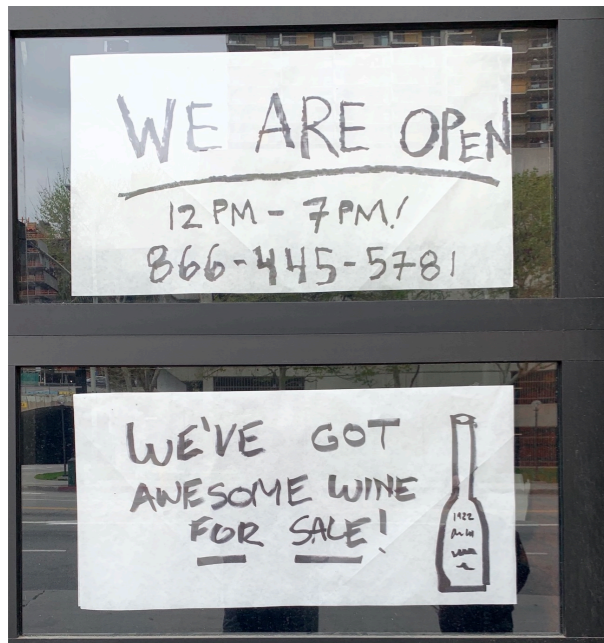 WE ARE OPEN
12 PM - 7 PM!
866-445-5781
WE'VE GOT
AWESOME WINE
FOR SALE!
1922